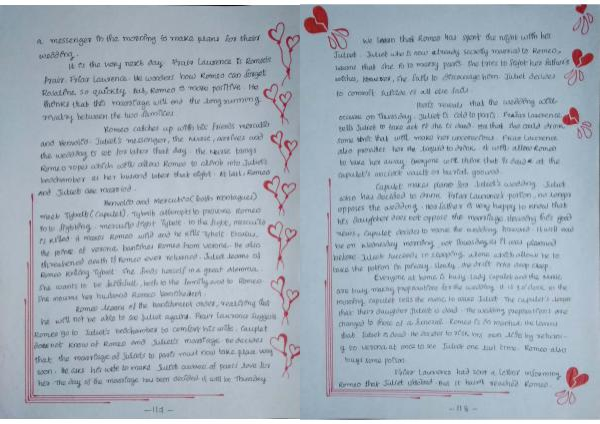 a messenger in the morning to make plans for their
wedding.
It is the very next day. Friar Laurence is Romeo's
Friar. Friar Laurence. He wonders how Romeo can forget
Rosaline so quickly. But, Romeo is positive. He
thinks that this marriage will end the long running
rivalry between the two families.
Romeo catches up with his friends mercutio
and Benvolio. Juliet's messenger, the Nurse, arrives and
the wedding is set for later that day. The Nurse brings
Romeo ropes which will allow Romeo to climb into Juliet's
bedchamber as her husband later that night. At last, Romeo
and Juliet are married.
Benvolio and Mercutio (both montagues)
meet Tybalt (Capulet). Tybalt attempts to provoke Romeo
to fighting. mercutio fight Tybalt. In the fight, mercutio
is killed. It makes Romeo wild and he kills Tybalt.
the prince of verona banishes Romeo from verona. He also
threatened death if Romeo ever returned. Juliet learns of
Romeo killing Tybalt. She finds herself in a great dilemma.
She wants to be faithful, both to the family and to Romeo
She mourns her husband Romeo banishment.
Romeo learns of the banishment order, realizing that
he will not be able to see Juliet again. Friar Laurence suggests
Romeo go to Juliet's bedchamber to comfort his wife. Capulet
does not know of Romeo and Juliet's marriage. He decides
that the marriage of Juliet to paris must now take place very
soon. He asks his wife to make Juliet aware of paris' love for
her. The day of the marriage has been decided it will be Thursday.
-117-
We learn that Romeo has spent the night with her
Juliet. Juliet who is now already secretly married to Romeo,
learns that she is to marry paris. She tries to fight her father's
wishes, however, she fails to discourage him. Juliet decides
to commit suicide if all else fails.
Paris reveals that the wedding will
occur on Thursday. Juliet is cold to paris. Friar Laurence
tells Juliet to take out of the
that will make her unconscious. Friar Laurence
also provides her the liquid to drink. It will allow Romeo
to take her away. Everyone will think that is dead at the
capulet's ancient vault as burial ground.
Capulet makes plans for Juliet's wedding. Juliet
who has decided to drink Friar Laurence's potion, no longer
opposes the wedding. Her father is very happy to know that
his daughter does not oppose the marriage. Hearing his good
news, Capulet decides to move the wedding forward. It will now
be on wednesday morning, not thursday as it was planned
before. Juliet succeeds in sleeping alone which allow her to
take the potion in privacy. Slowly, she drift into deep sleep.
Everyone at home is busy. Lady Capulet and the Nurse
are busy making preparations for the wedding. It is 3 o'clock in the
morning. Capulet tells the nurse to wake Juliet. The capulets learn
that their daughter Juliet is dead. The wedding preparations are
changed to those of a funeral. Romeo is in mantua. He learns
that Juliet is dead. He decides to risk his own life by returning
to verona at once to see Juliet one last time. Romeo also
buys some potion.
Friar Laurence had sent a letter informing
Romeo that Juliet
-118-